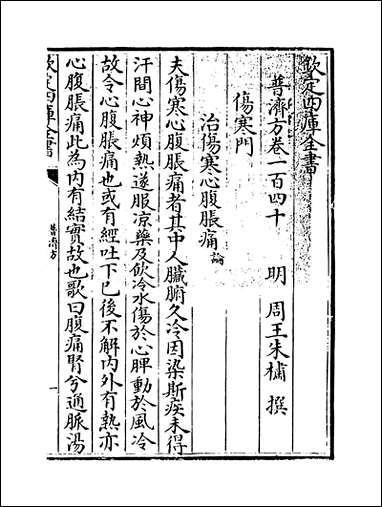 欽定四庫全書
普濟方卷一百四十
明 周王朱橚 撰
傷寒門
治傷寒心腹脹痛論
夫傷寒心腹脹痛者其中人臟腑久冷因染斯疾未得
汗間心神煩熱遂服凉藥及飲冷水傷於心脾動於風冷
故令心腹脹痛也或有經吐下已後不解内外有熱亦
心腹脹痛此為内有結實故也歌曰腹痛腎兮通脈湯
欽定四庫全書
普濟方
一